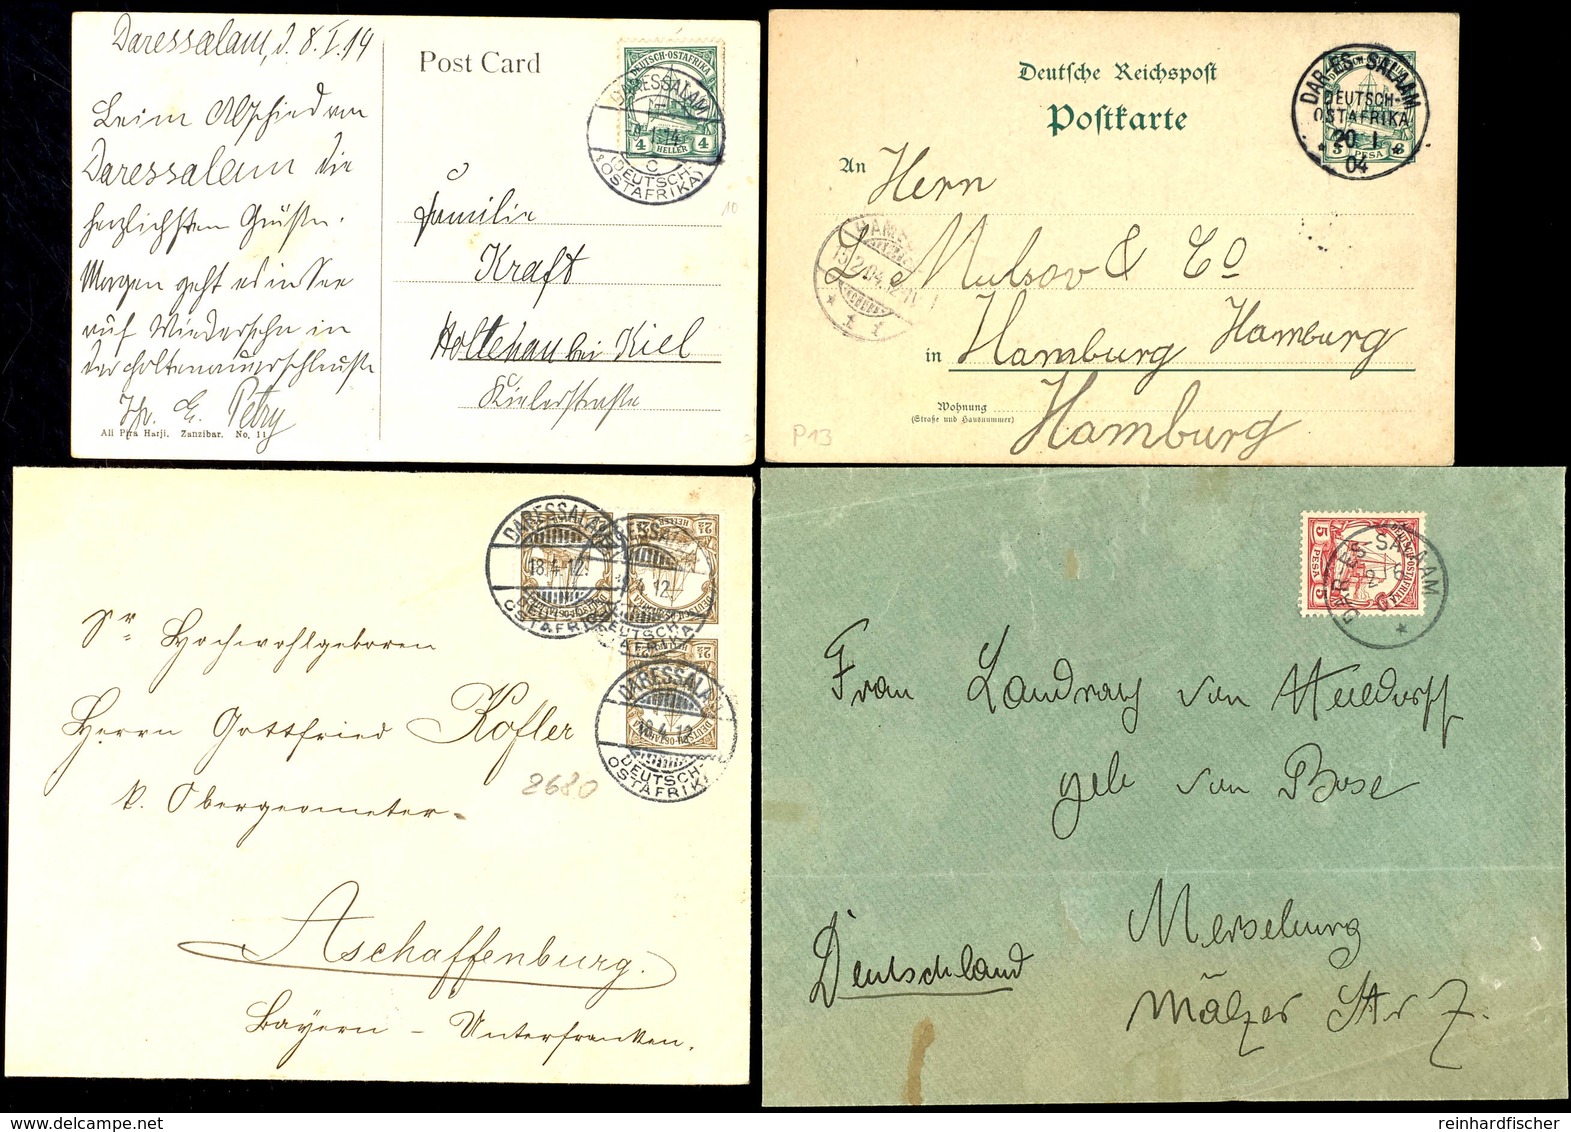 Daressalam, d. 8.I.14
Post Card
DEUTSCH-OSTAFRIKA
4 HELLER 4
DARESSALAM
1.14.
C
(DEUTSCH-OSTAFRIKA)
Beim Abschied von
Daressalam die
herzlichsten Grüße.
Morgen geht es in See
auf Wiedersehn in
der Holtenauerschleuße
E. Petry
Familie
Kraft
Holtenau bei Kiel
Kielerstraße
10
Ali Pira Harji. Zanzibar. No. 11
Deutsche Reichspost
Postkarte
DAR-ES-SALAAM
DEUTSCH-
OSTAFRIKA
20 1
04
3 PESA 3
An
Herrn
L. Mulsow & Co
Hamburg
in Hamburg
Hamburg
Wohnung
(Straße und Hausnummer)
P13
DARESSALAM
18.4.12.
DEUTSCH-
OSTAFRIKA
2½ HELLER 2½
DARESSALAM
18.4.12.
DEUTSCH-
OSTAFRIKA
DARESSALAM
18.4.12.
DEUTSCH-
OSTAFRIKA
Sr Hochwohlgeboren
Herrn Gottfried Kofler
k. Obergeometer
2680
Aschaffenburg.
Bayern - Unterfranken.
5 PESA 5
DEUTSCH-OSTAFRIKA
DAR-ES-SALAAM
Frau Landrath von
geb von Bose
Merseburg
Deutschland
Mälzer Str 7.
reinhardfischer